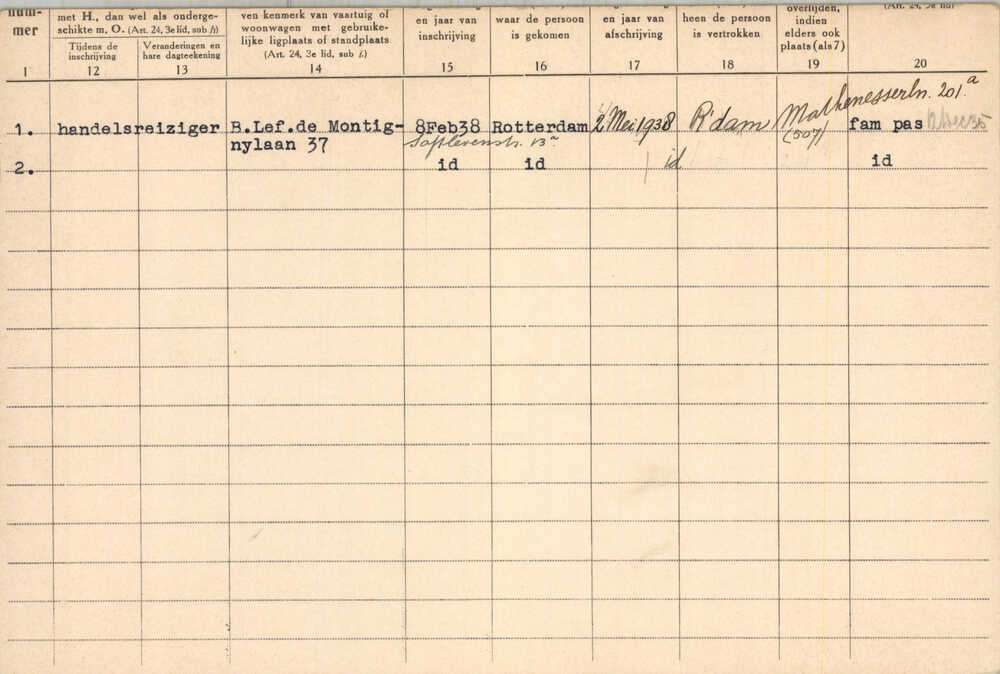 num-
mer
1
met H., dan wel als onderge-
schikte m. O. (Art. 24, 3e lid, sub j)
Tijdens de
inschrijving
12
Veranderingen en
hare dagteekening
13
ven kenmerk van vaartuig of
woonwagen met gebruike-
lijke ligplaats of standplaats
(Art. 24, 3e lid, sub f.)
14
en jaar van
inschrijving
15
waar de persoon
is gekomen
16
en jaar van
afschrijving
17
heen de persoon
is vertrokken
18
overlijden,
indien
elders ook
plaats (als 7)
19
(Art. 24, 3e lid)
20
1. handelsreiziger B.Lef.de Montig- 8Feb38 Rotterdam 2 Mei 1938 R'dam Mathenesserln. 201a fam pas
nylaan 37 Saftlevenstr. 13a (507)
2. id id id id